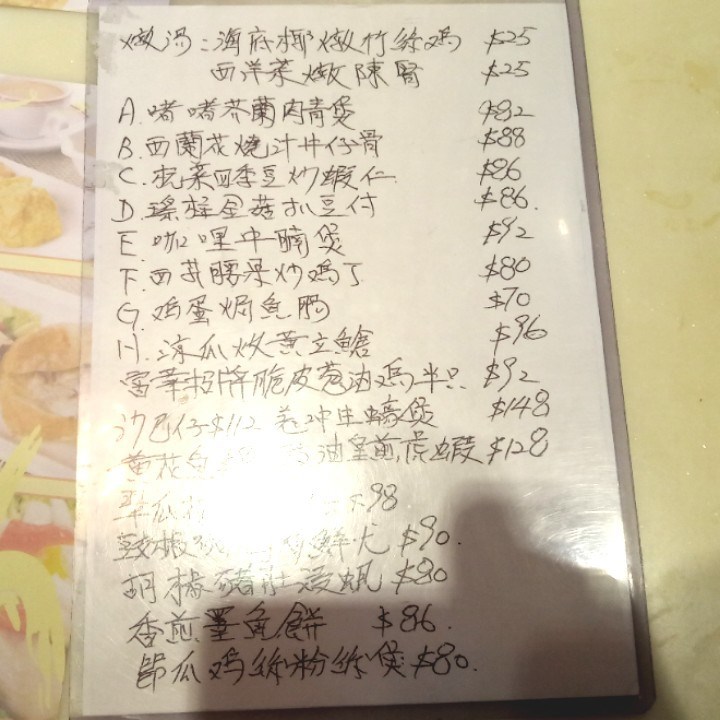 燉湯:海底椰燉竹絲鸡 $25
西洋菜燉陳腎 $25
A.啫啫芥蘭肉青煲 $82
B.西蘭花燒汁牛仔骨 $88
C.菜四季豆炒蝦仁 $86
D.瑤柱金菇扒豆付 $86.
E.咖哩牛腩煲 $92
F.西芹腰果炒鸡丁 $80
G.鸡蛋焗魚腸 $70
H.涼瓜炆黄立鱠 $96
招牌脆皮葱油鸡半只 $92
沙巴仔$112 生蠔煲 $148
黄花魚 油皇煎蝦 $128
瓜 98
椒 鲜 $90.
胡椒豬肚浸蚬 $80
香煎墨魚餅 $86.
節瓜鸡絲粉絲煲$80.